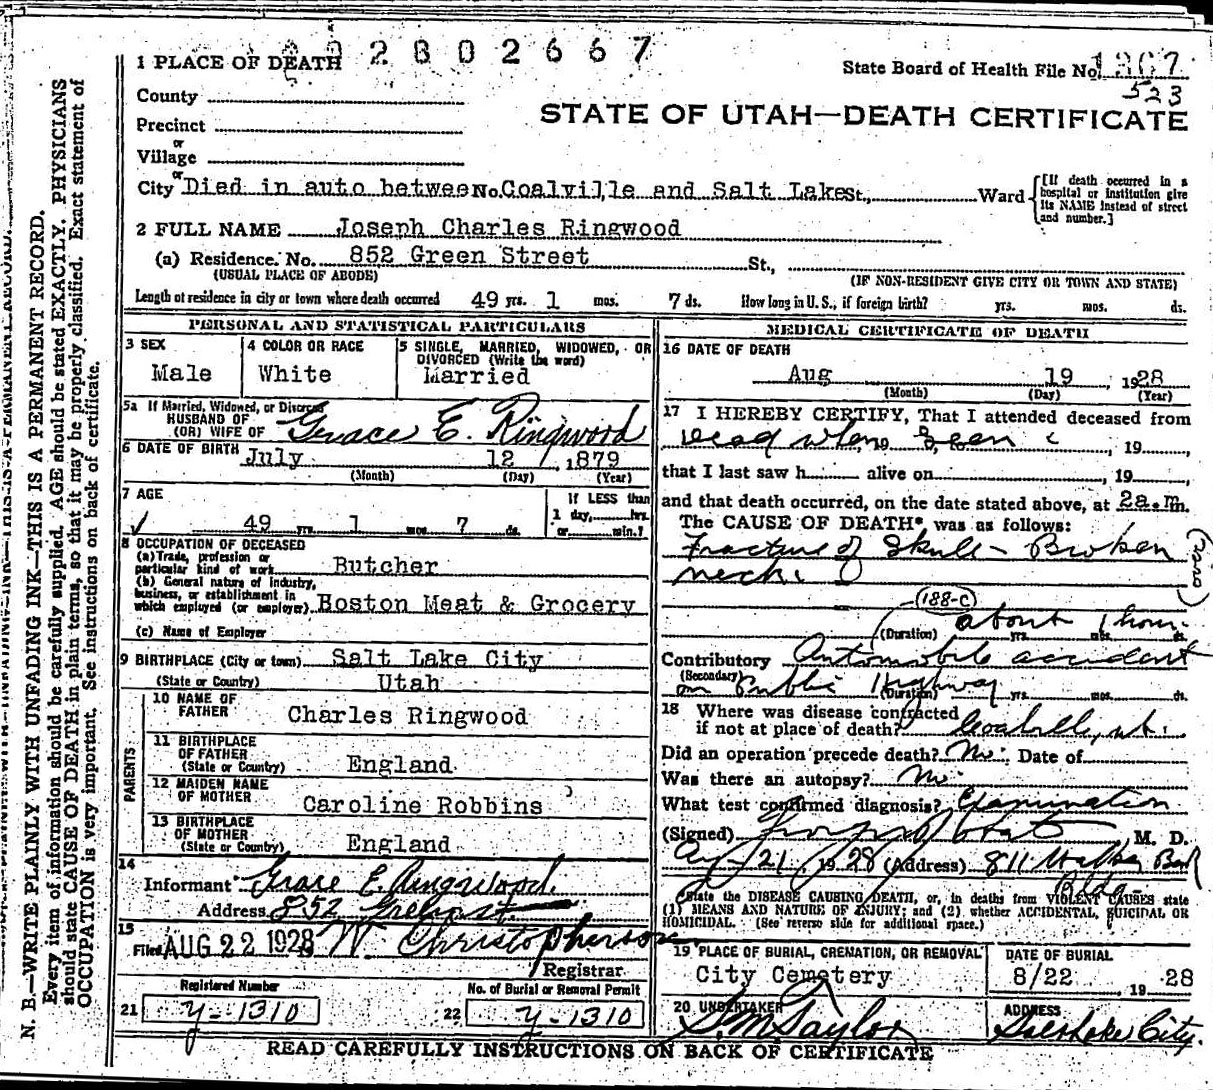 2 8 0 2 6 6 7
1 PLACE OF DEATH
State Board of Health File No.
523
County
STATE OF UTAH—DEATH CERTIFICATE
Precinct
or
Village
or
City Died in auto between No. Coalville and Salt Lake St., Ward
[If death occurred in a hospital or institution give its NAME instead of street and number.]
2 FULL NAME Joseph Charles Ringwood
(a) Residence. No. 852 Green Street St.,
(USUAL PLACE OF ABODE) (IF NON-RESIDENT GIVE CITY OR TOWN AND STATE)
Length of residence in city or town where death occurred 49 yrs. 1 mos. 7 ds. How long in U. S., if foreign birth? yrs. mos. ds.
PERSONAL AND STATISTICAL PARTICULARS
3 SEX
Male
4 COLOR OR RACE
White
5 SINGLE, MARRIED, WIDOWED, OR
DIVORCED (Write the word)
Married
5a If Married, Widowed, or Divorced
HUSBAND OF
(OR) WIFE OF Grace E. Ringwood
6 DATE OF BIRTH July 12, 1879
(Month) (Day) (Year)
7 AGE
49 yrs. 1 mos. 7 ds.
If LESS than
1 day, hrs.
or min.?
8 OCCUPATION OF DECEASED
(a) Trade, profession or
particular kind of work Butcher
(b) General nature of industry,
business, or establishment in
which employed (or employer) Boston Meat & Grocery
(c) Name of Employer
9 BIRTHPLACE (City or town) Salt Lake City
(State or Country) Utah
PARENTS
10 NAME OF
FATHER Charles Ringwood
11 BIRTHPLACE
OF FATHER
(State or Country) England
12 MAIDEN NAME
OF MOTHER Caroline Robbins
13 BIRTHPLACE
OF MOTHER
(State or Country) England
14
Informant Grace E. Ringwood.
Address 852 Green st
15
Filed AUG 22 1928 W. Christopherson
Registrar
Registered Number
21 y-1310
No. of Burial or Removal Permit
22 y-1310
MEDICAL CERTIFICATE OF DEATH
16 DATE OF DEATH
Aug 19, 1928
(Month) (Day) (Year)
17 I HEREBY CERTIFY, That I attended deceased from
Dead when seen, 19
that I last saw h alive on , 19
and that death occurred, on the date stated above, at 2a.m.
The CAUSE OF DEATH* was as follows:
Fracture of Skull - Broken
neck.
(over)
188-c
about 1 hour
(Duration) yrs. mos. ds.
Contributory Automobile accident
(Secondary) on Public Highway
(Duration) yrs. mos. ds.
18 Where was disease contracted
if not at place of death? Coalville, ut.
Did an operation precede death? No. Date of
Was there an autopsy? No.
What test confirmed diagnosis? Examination
(Signed) M. D.
Aug 21, 1928 (Address) 811 Walker Bank
Bldg
State the DISEASE CAUSING DEATH, or, in deaths from VIOLENT CAUSES state
(1) MEANS AND NATURE OF INJURY; and (2) whether ACCIDENTAL, SUICIDAL OR
HOMICIDAL. (See reverse side for additional space.)
19 PLACE OF BURIAL, CREMATION, OR REMOVAL
City Cemetery
DATE OF BURIAL
8/22, 1928
20 UNDERTAKER
S. M. Taylor
ADDRESS
Salt Lake City.
READ CAREFULLY INSTRUCTIONS ON BACK OF CERTIFICATE
N. B.—WRITE PLAINLY WITH UNFADING INK—THIS IS A PERMANENT RECORD.
Every item of information should be carefully supplied. AGE should be stated EXACTLY. PHYSICIANS
should state CAUSE OF DEATH in plain terms, so that it may be properly classified. Exact statement of
OCCUPATION is very important. See instructions on back of certificate.